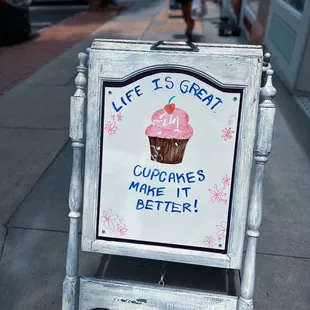 LIFE IS GREAT
CUPCAKES
MAKE IT
BETTER!